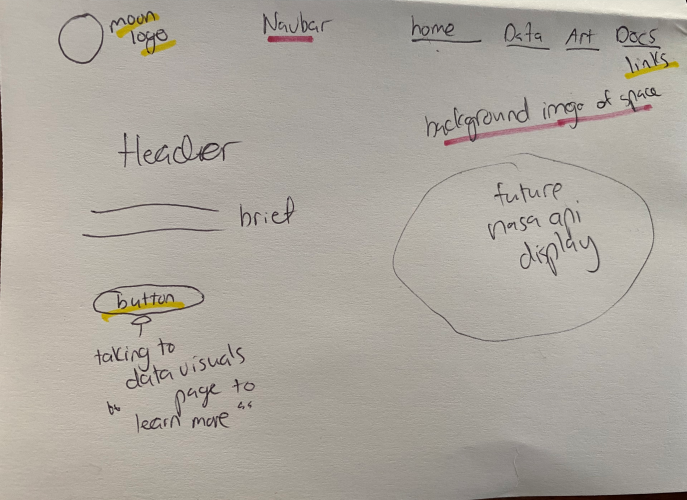 moon
logo
Navbar
home
Data
Art
Docs
links
background image of space
Header
brief
future
nasa api
display
button
taking to
data visuals
page to
" learn more "